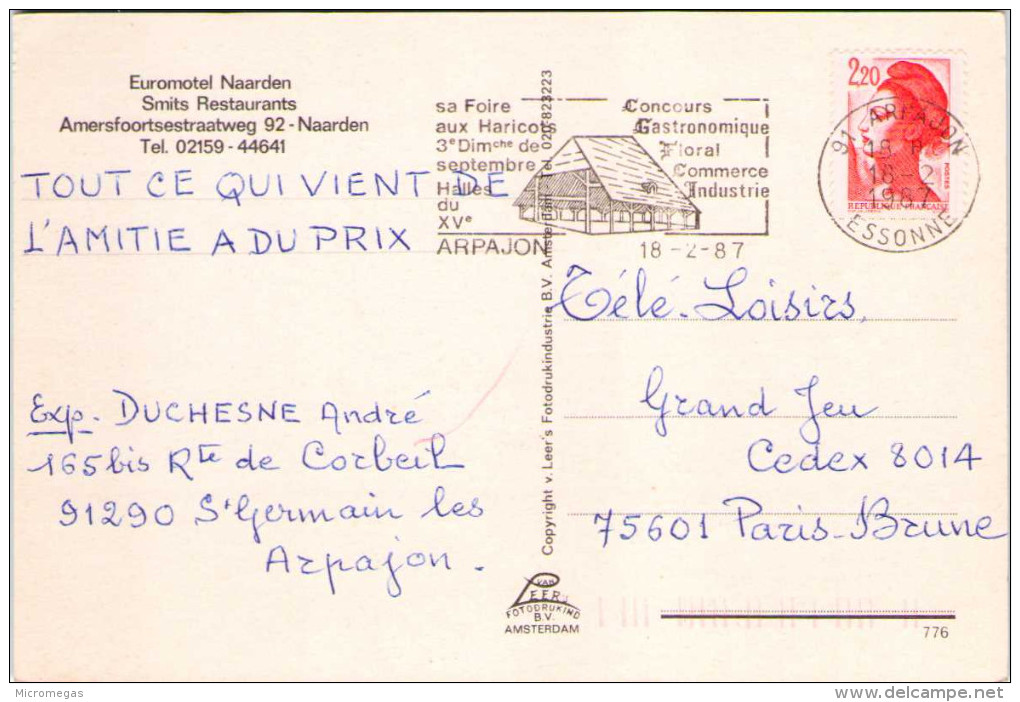 Euromotel Naarden
Smits Restaurants
Amersfoortsestraatweg 92 - Naarden
Tel. 02159 - 44641
TOUT CE QUI VIENT DE
L'AMITIE A DU PRIX
sa Foire
aux Haricots
3e Dimche de
septembre
Halles
du
XVe
ARPAJON
Concours
Gastronomique
Floral
Commerce
Industrie
18-2-87
2,20
POSTES
REPUBLIQUE FRANCAISE
91 ARPAJON
18 H
18 - 2
1987
ESSONNE
Exp. DUCHESNE André
165bis Rte de Corbeil
91290 St Germain les
Arpajon.
Copyright v. Leer's Fotodrukindustrie B.V. Amsterdam - Tel. 020-823223
Télé-Loisirs,
Grand Jeu
Cedex 8014
75601 Paris-Brune
VAN
LEER
FOTODRUKIND
B.V.
AMSTERDAM
776
Micromegas
delcampe.net